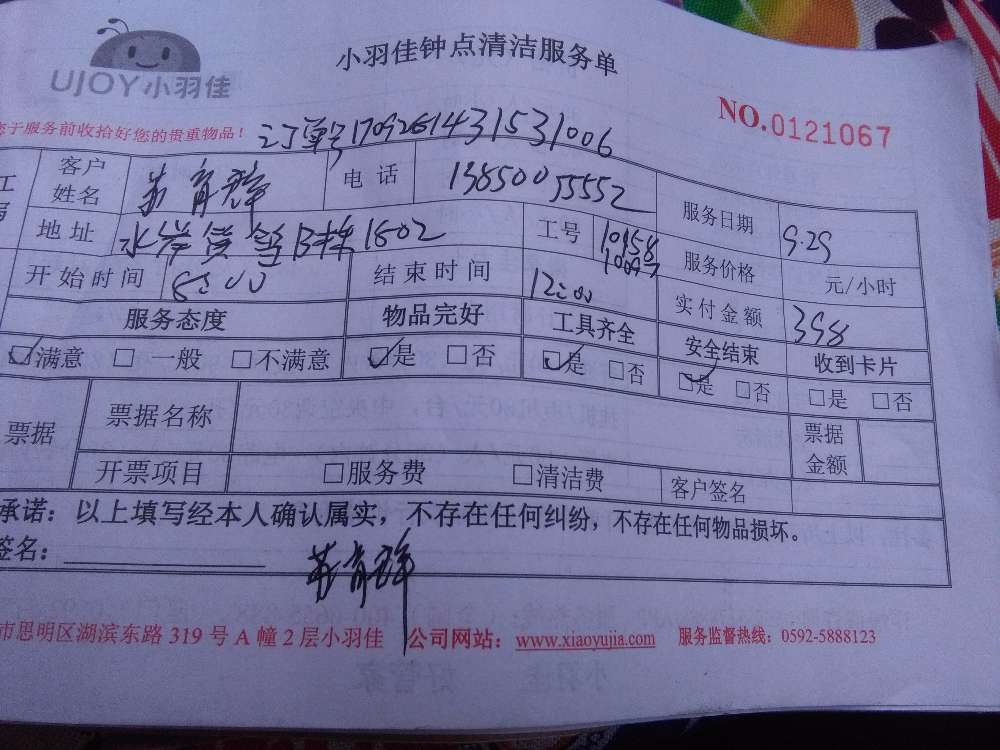 UJOY小羽佳
小羽佳钟点清洁服务单
NO.0121067
于服务前收拾好您的贵重物品！
订单号1709261431531006
客户姓名 电话 13850055552 服务日期 9.29
地址 B栋1602 工号 10158 服务价格 元/小时
开始时间 8:00 结束时间 12:00 实付金额 398
服务态度 物品完好 工具齐全 安全结束 收到卡片
☑满意 □一般 □不满意 ☑是 □否 ☑是 □否 ☑是 □否 □是 □否
票据 票据名称 票据金额
开票项目 □服务费 □清洁费 客户签名
承诺：以上填写经本人确认属实，不存在任何纠纷，不存在任何物品损坏。
签名：
市思明区湖滨东路 319 号 A 幢 2 层小羽佳 公司网站：www.xiaoyujia.com 服务监督热线：0592-5888123